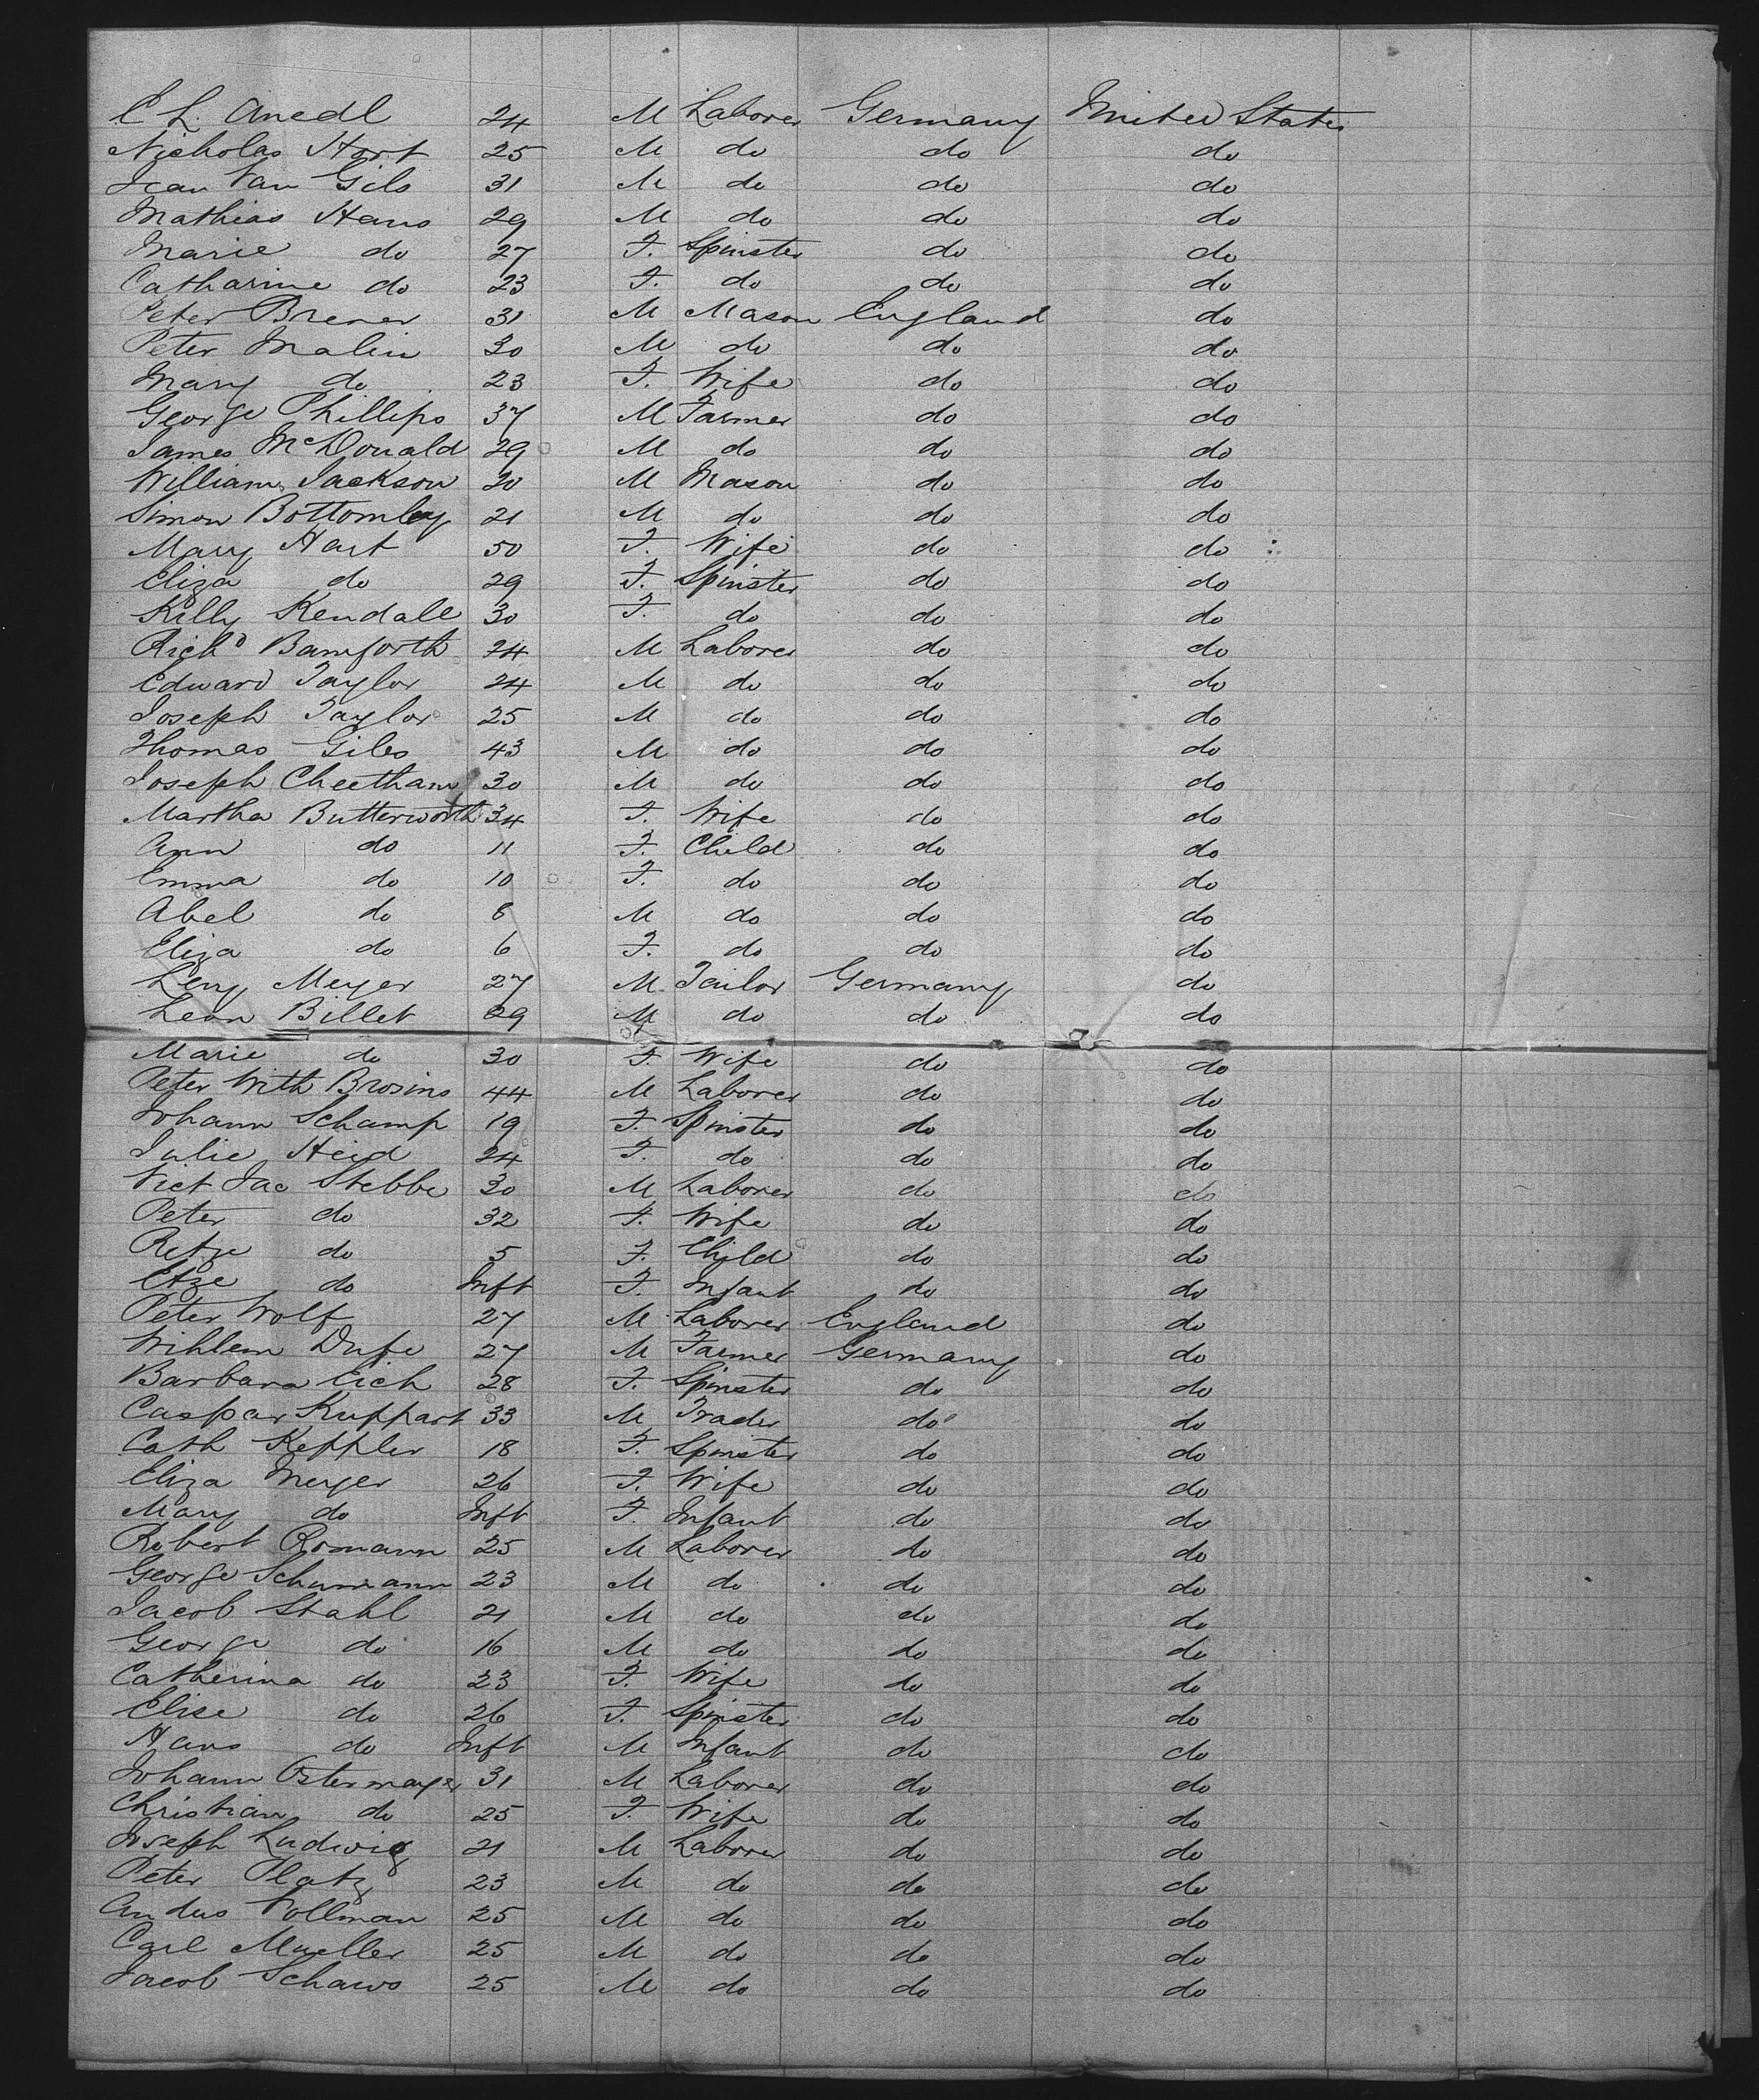 C L. Anedl 24 M Laborer Germany United States
Nicholas Hort 25 M do do do
Jean Van Gils 31 M do do do
Mathias Hans 29 M do do do
Marie do 27 F. Spinster do do
Catharine do 23 F. do do do
Peter Brener 31 M Mason England do
Peter Malin 30 M do do do
Mary do 23 F. Wife do do
George Phillips 37 M Farmer do do
James McDonald 29 M do do do
William Jackson 20 M Mason do do
Simon Bottomley 21 M do do do
Mary Hart 50 F. Wife do do
Eliza do 29 F. Spinster do do
Killy Kendall 30 F. do do do
Richd Bamforth 24 M Laborer do do
Edward Taylor 24 M do do do
Joseph Taylor 25 M do do do
Thomas Giles 43 M do do do
Joseph Cheetham 30 M do do do
Martha Butterworth 34 F. Wife do do
Ann do 11 F. Child do do
Emma do 10 F. do do do
Abel do 8 M do do do
Eliza do 6 F. do do do
Leny Meyer 27 M Tailor Germany do
Leon Billet 29 M do do do
Marie do 30 F. Wife do do
Peter With Brosins 44 M Laborer do do
Johann Schamp 19 F. Spinster do do
Julie Heid 24 F. do do do
Vict Jac Stebbe 30 M Laborer do do
Peter do 32 F. Wife do do
Retze do 5 F. Child do do
Etze do Inft F. Infant do do
Peter Wolf 27 M Laborer England do
Wihlem Dupe 27 M Farmer Germany do
Barbara Eich 28 F. Spinster do do
Caspar Kuppart 33 M Trader do do
Cath Keppler 18 F. Spinster do do
Eliza Meyer 26 F. Wife do do
Mary do Inft F. Infant do do
Robert Romann 25 M Laborer do do
George Schumann 23 M do do do
Jacob Stahl 21 M do do do
George do 16 M do do do
Catherina do 23 F. Wife do do
Elise do 26 F. Spinster do do
Hans do Inft M Infant do do
Johann Ostermayer 31 M Laborer do do
Christian do 25 F. Wife do do
Joseph Ludwig 21 M Laborer do do
Peter Platz 23 M do do do
Andus Vollman 25 M do do do
Carl Mueller 25 M do do do
Jacob Schaws 25 M do do do